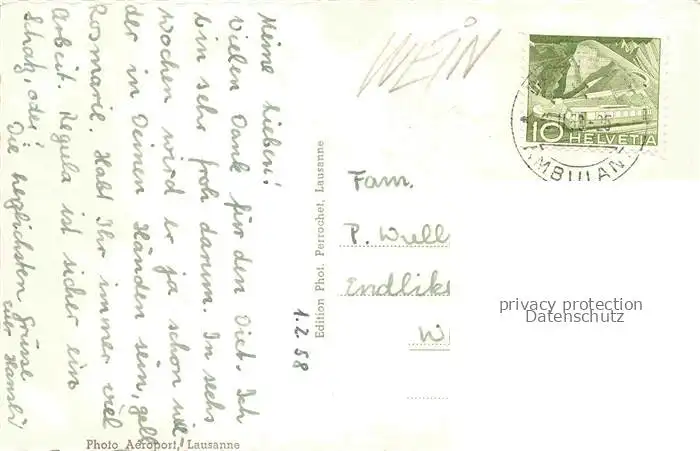 Meine Lieben!
Vielen Dank für den Diet. Ich
bin sehr froh darum. In sechs
Wochen wird er ja schon wie-
der in Deinen Händen sein, gell
Rosmarie. Habt Ihr immer viel
Arbeit. Regula ist sicher ein
Schatz, oder!
Die herzlichsten Grüsse
euer Hansli
1.2.58
Edition Phot. Perrochet, Lausanne
Photo Aéroport, Lausanne
WEIN
10 HELVETIA
AMBULANT
Fam.
P. Wull
Endliks
W
privacy protection
Datenschutz